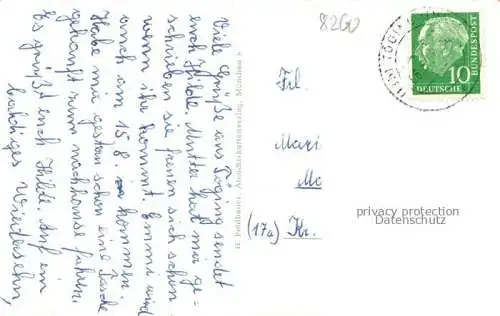 Viele Grüße aus Töging sendet
euch Hilde. Mutter hat mir ge-
schrieben sie freuen sich schon
wenn ihr kommt. Emmi wird
auch am 15.8. kommen.
Habe mir gestern schon eine Tasche
gekauft zum nachhause fahren.
Es grüßt euch Hilde. Auf ein
baldiges Wiedersehn,
8260
Frl.
Mari
Ma
(17a) Kr.
privacy protection
Datenschutz
DEUTSCHE
BUNDESPOST
10